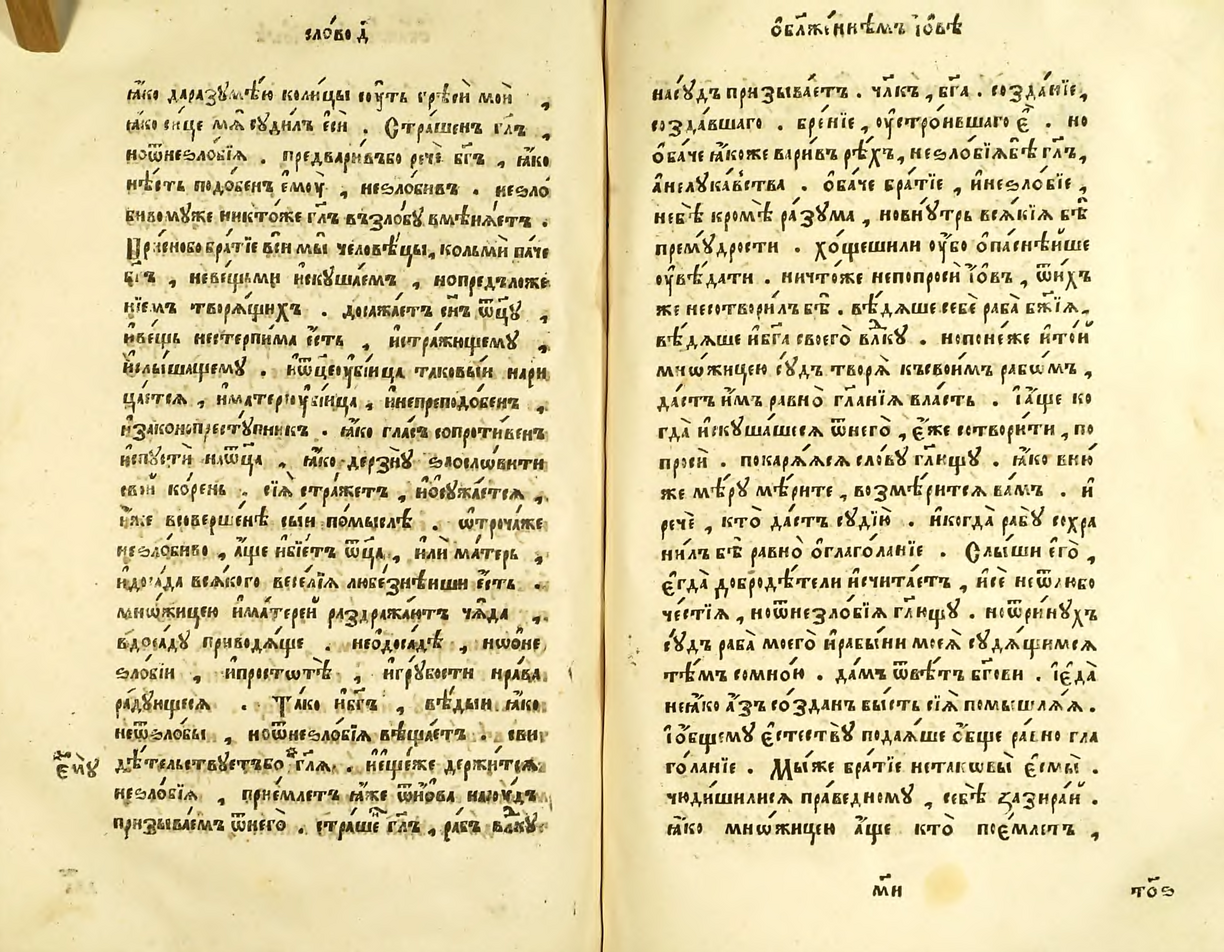 сло́во д҃
ꙗ҆́ко даразꙋмѣ́ю коли́цы сꙋ́ть грѣсѝ моѝ ,
ꙗ҆́ко си́це мѧ̀ сꙋди́лъ є҆сѝ . Стра́шенъ гл҃ъ ,
ноѿнеѕло́бїѧ . предвари́въбо речѐ бг҃ъ , ꙗ҆́ко
нѣ́сть подо́бенъ є҆мꙋ̀ , неѕло́бивъ . неѕло
бивомꙋже никто́же гл҃ъ въѕло́бꙋ вмѣнѧ́етъ .
При́снобо бра́тїе всѝ мы̀ человѣ́цы, кольмѝ па́че
бг҃ъ , неве́щьми и҆скꙋша́ем , нопредъложе́
нїемъ творѧ́щихъ . досажа́етъ сн҃ъ ѿц҃ꙋ ,
и҆ве́щь нестерпи́ма є҆́сть , и҆стра́жꙋщемꙋ ,
и҆слы́шащемꙋ . и҆ѿцеꙋбі́йца таковы́й нари
ца́етсѧ , и҆матероꙋбі́йца , и҆непреподо́бенъ ,
и҆законопрестꙋ́пник . ꙗ҆́ко гла́съ сопроти́венъ
и҆спꙋстѝ наѿц҃а̀ , ꙗ҆́ко дерзнꙋ̀ ѕлосло́вити
сво́й ко́рень . сїѧ̀ стра́жетъ , и҆ѡ҆сꙋжа́етсѧ ,
и҆́же всоверше́нѣ сы́й по́мыслѣ . ѻ҆троча́же
неѕло́биво , а҆́ще и҆бїе́тъ ѿц҃а̀ , и҆лѝ ма́терь ,
и҆доса́да всѧ́кого весе́лїѧ любе́знѣйши є҆́сть .
мно́жицею и҆ма́терей раздража́ютъ ча̑да ,
вдоса́дꙋ приводѧ́ще . неѡ҆доса́дѣ , но ѡ҆не
ѕло́бїи , и҆простотѣ̀ , и҆грꙋ́бости нра́ва
ра́дꙋющесѧ . Та́ко и҆бг҃ъ , вѣ́дый ꙗ҆́ко
неѿѕло́бы , ноѿнеѕло́бїѧ вѣща́етъ . сви
дѣ́тельствꙋетъбо гл҃ѧ . и҆еще́же держи́тсѧ
є҆мꙋ̀
неѕло́бїѧ , прїе́млетъ ꙗ҆́же ѿи҆́ова насꙋ́дъ
призыва́емъ ѿнегѡ̀ . стра́ше́ гл҃ъ , ра́бъ влⷣкꙋ
ѻ҆бл҃же́ннѣмъ і҆́овѣ
насꙋ́дъ призыва́етъ . чл҃къ , бг҃а . созда́нїе,
созда́вшаго . бре́нїе , ꙋ҆стро́ившаго є҆̀ . но
ѻ҆ба́че ꙗ҆́коже вари́въ рѣ́хъ, неѕло́бїѧбѣ̀ гл҃ъ,
а҆нелꙋка́вства . ѻ҆ба́че бра́тїе , и҆неѕло́бїе ,
небѣ̀ кромѣ̀ ра́зꙋма , новнꙋ́трь всѧ́кїѧ бѣ̀
премꙋ́дрости . хо́щешили ꙋ҆́бо ѻ҆па́снѣйше
ꙋ҆вѣ́дати . ничто́же непопросѝ і҆́овъ , ѿни́хъ
же несотвори́лъ бѣ̀ . вѣ́дѧше себѐ раба̀ бж҃їѧ ,
вѣ́дѧше и҆бг҃а своего̀ влⷣкꙋ . нопоне́же и҆то́й
мно́жицею сꙋ́дъ творѧ̀ късвои́мъ рабѡ́мъ ,
да́стъ и҆̀мъ равно̀ гл҃анїѧ вла́сть . і҆а҆́ще ко
гда̀ и҆скꙋша́шесѧ ѿнего̀ , є҆́же сотвори́ти , по
просѝ . покарѧ́ѧсѧ сло́вꙋ гл҃ющꙋ . ꙗ҆́ко вню́
же мѣ́рꙋ мѣ́рите , возмѣ́ритсѧ ва́мъ . и҆
речѐ , кто̀ да́стъ сꙋдїю̀ . и҆когда̀ рабꙋ̀ сохра
ни́лъ бѣ̀ равно̀ ѻ҆глаго́ланїе . Слы́ши є҆го̀ ,
є҆гда̀ добродѣ́тели и҆счита́етъ , и҆сѐ неѿлюбо
че́стїѧ , ноѿнеѕло́бїѧ гл҃ющꙋ . неѿри́нꙋхъ
сꙋ́дъ раба̀ моего̀ и҆рабы́ни моеѧ̀ сꙋдѧ́щимсѧ
тѣ́мъ сомно́ю . да́мъ ѿвѣ́тъ бг҃ови . і҆є҆да̀
неꙗ҆́ко а҆́зъ со́зданъ бы́сть сїѧ̀ помышлѧ́ѧ .
і҆ѻ҆́бщемꙋ є҆стествꙋ̀ подаѧ́ше ѻ҆́бще ра́вно гла
го́ланїе . Мы́же бра́тїе нетаковы̀ є҆смы̀ .
чюди́шилисѧ пра́ведномꙋ , себѣ̀ зазира́й .
ꙗ҆́ко мно́жицею а҆́ще кто̀ пое́млетъ ,
м҃и
то́ѕ